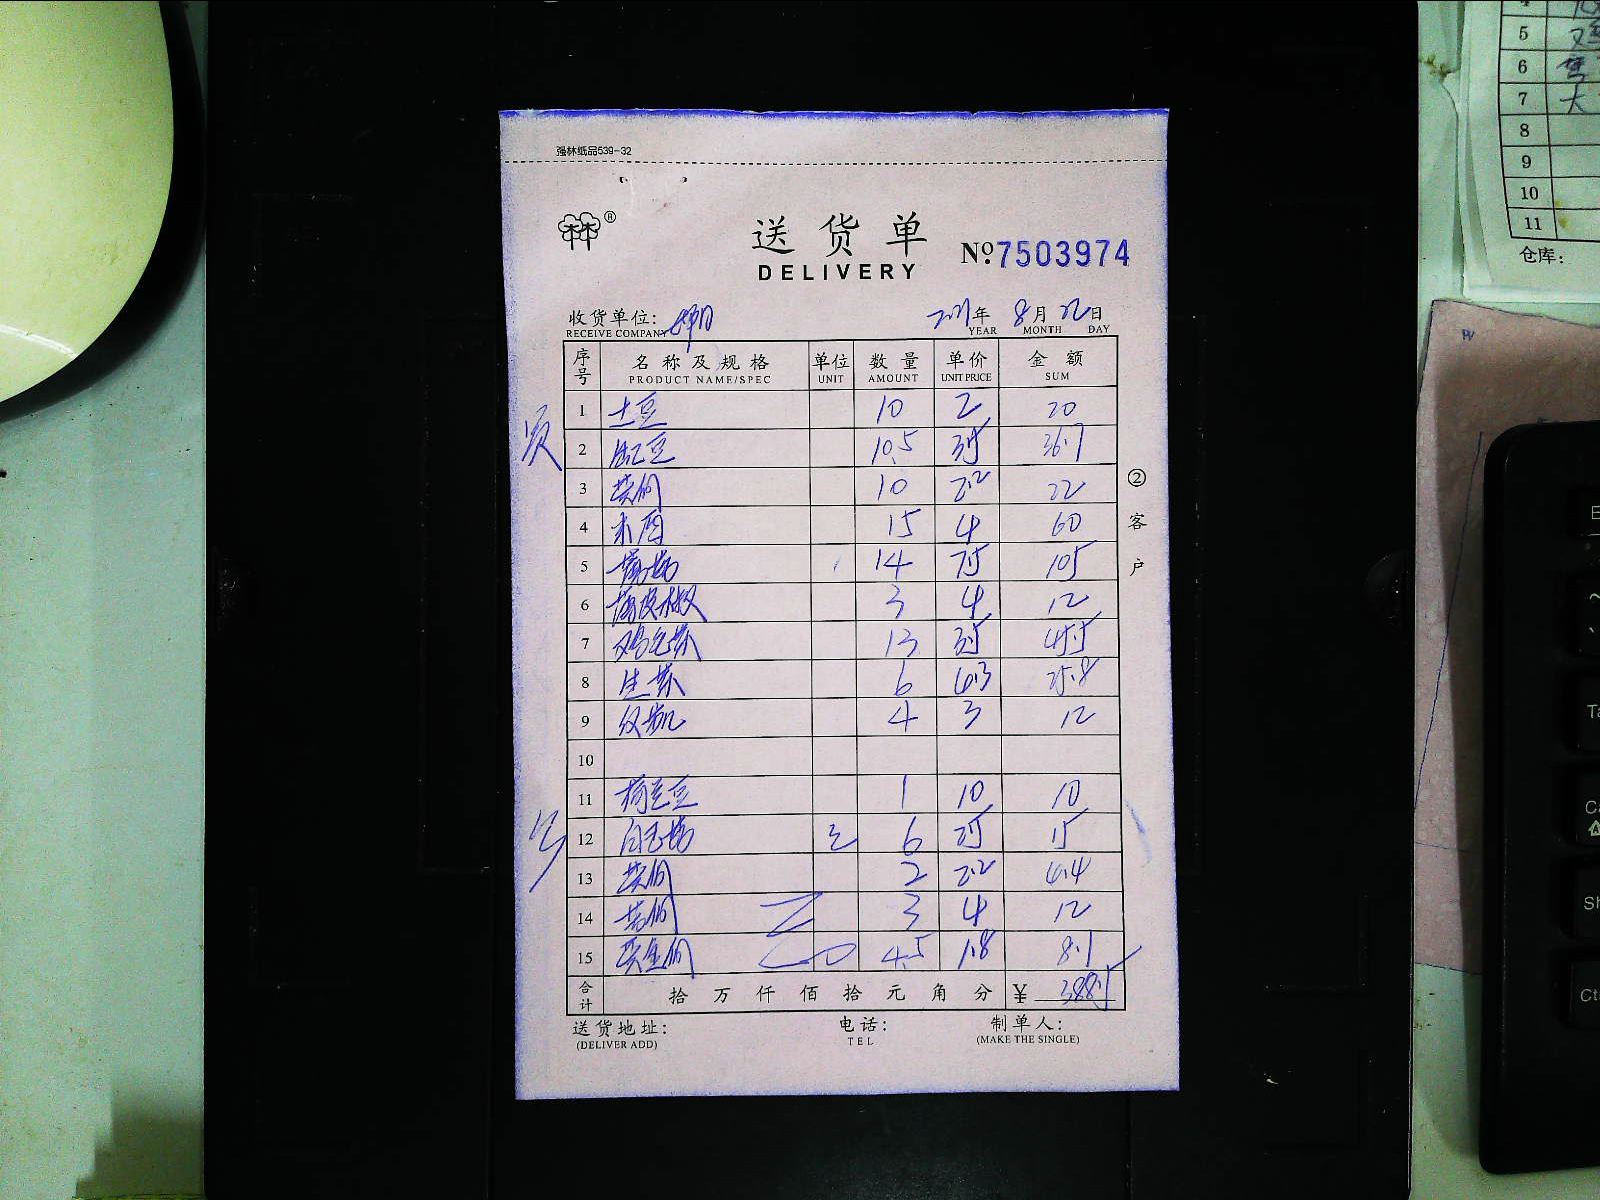 强林纸品539-32
送货单
DELIVERY
№ 7503974
收货单位:
RECEIVE COMPANY
年 8月22日
YEAR MONTH DAY
序号 名称及规格 单位 数量 单价 金额
PRODUCT NAME/SPEC UNIT AMOUNT UNIT PRICE SUM
1 土豆 10 2 20
2 缸豆 10.5 3.5 36.7
3 10 2.2 22
4 15 4 60
5 14 7.5 105
6 薄皮椒 3 4 12
7 鸡毛菜 13 3.5 45.5
8 生菜 6 4.3 25.8
9 4 3 12
10
11 荷兰豆 1 10 10
12 白玉菇 6 2.5 15
13 2 2.2 4.4
14 3 4 12
15 4.5 1.8 8.1
合计 拾万仟佰拾元角分 ¥ 388.5
②客户
送货地址:
(DELIVER ADD)
电话:
TEL
制单人:
(MAKE THE SINGLE)
5
6
7 大
8
9
10
11
仓库: